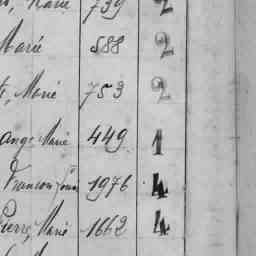 Marie 739 2
Marié 588 2
Marié 753 2
ange Marie 449 1
Francois 1976 4
Pierre, Marie 1662 4